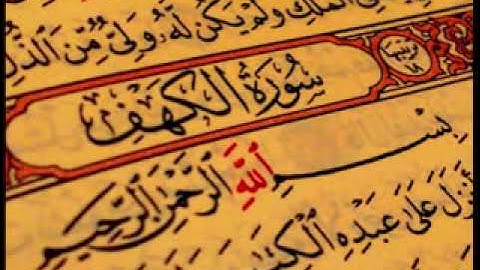 فِي ٱلْمُلْكِ وَلَمْ يَكُن لَّهُۥ وَلِيٌّ مِّنَ ٱلذُّلِّ
سُورَةُ ٱلْكَهْفِ
بِسْمِ ٱللَّهِ ٱلرَّحْمَٰنِ ٱلرَّحِيمِ
أَنزَلَ عَلَىٰ عَبْدِهِ ٱلْكِتَٰبَ